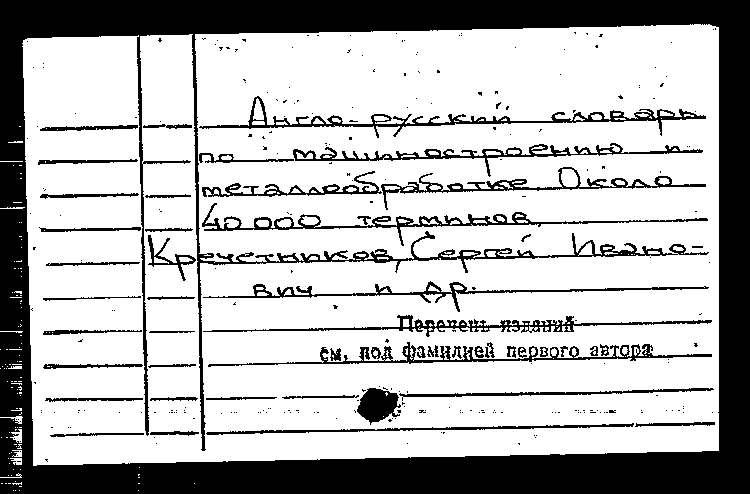 Англо-русский словарь
по машиностроению и
металлообработке. Около
40 000 терминов.
Кречетников, Сергей Ивано-
вич и др.
Перечень изданий
см. под фамилией первого автора